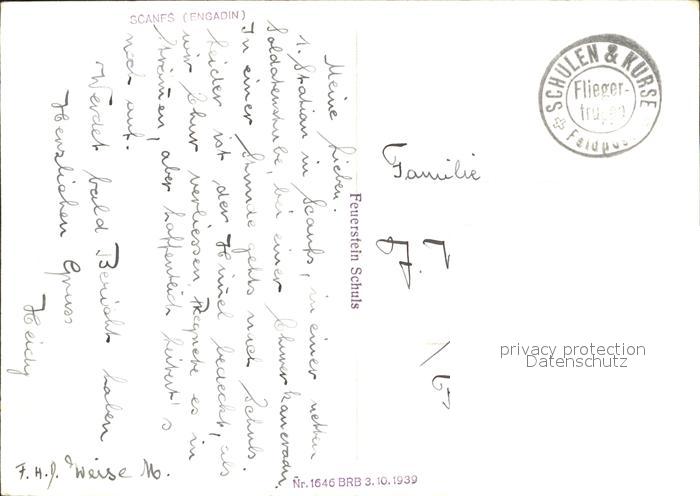 SCANFS (ENGADIN)
Meine Lieben.
1. Station in Scanfs, in einer netten
Soldatenstube, bei einer Churerkameradin.
In einer Stunde gehts nach Schuls.
Leider ist der Himmel bedeckt, als
wir Chur verliessen, regnete es in
Strömen, aber hoffentlich heitert's
noch auf.
Werdet bald Bericht haben
Herzlichen Gruss
Heidy
F.H.D. Weise M.
Feuerstein Schuls
Nr. 1646 BRB 3.10.1939
SCHULEN & KURSE
Flieger-
truppe
Feldpost
Familie
privacy protection
Datenschutz